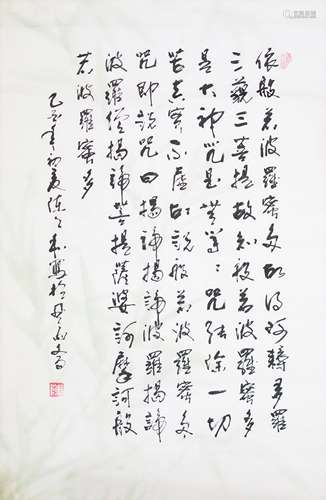 依般若波羅蜜多故得阿耨多羅
三藐三菩提故知般若波羅蜜多
是大神咒是無等〻咒能除一切
苦真實不虛故說般若波羅蜜多
咒即說咒曰揭諦揭諦波羅揭諦
波羅僧揭諦菩提薩婆訶摩訶般
若波羅蜜多
年初夏